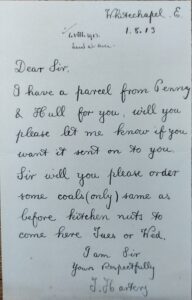 Whitechapel. E.
1.8.13
Dear Sir,
I have a parcel from Penny
& Hull for you, will you
please let me know if you
want it sent on to you.
Sir will you please order
some coals (only) same as
before kitchen nuts to
come here Tues or Wed.
I am Sir
Yours Respectfully